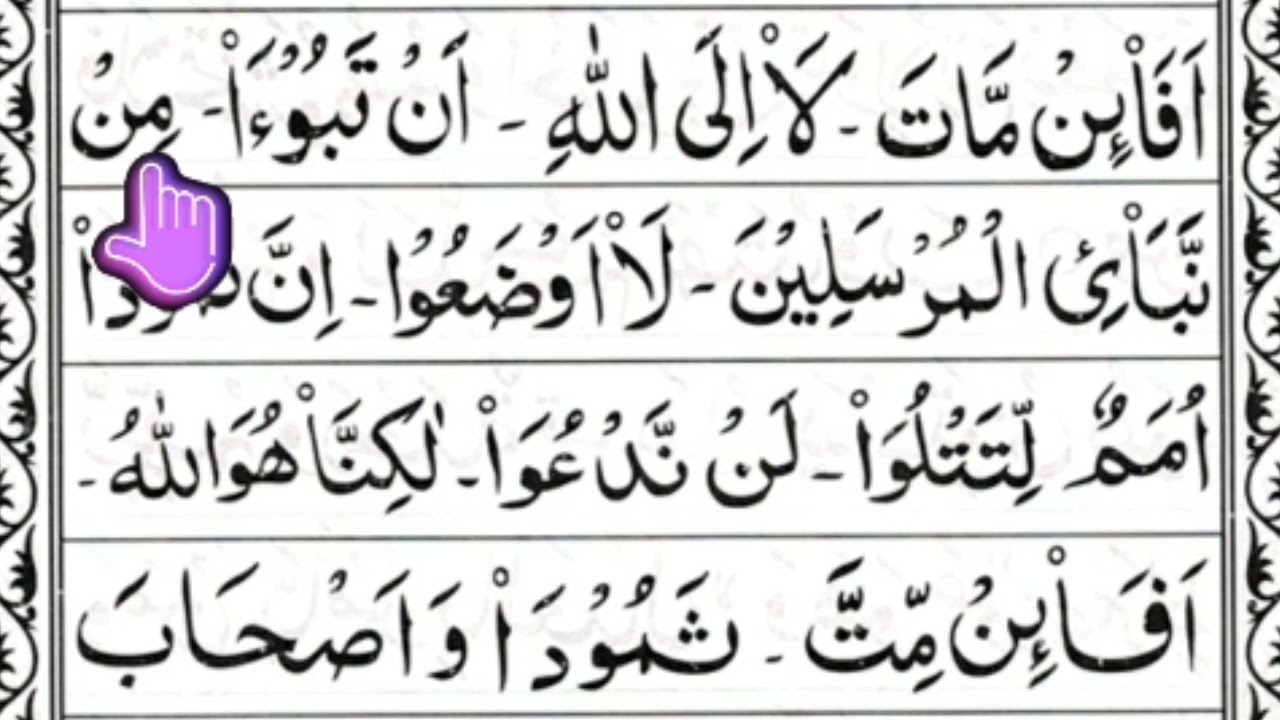 اَفَا۟ئِنْ مَّاتَ ۔ لَا۟ اِلَى اللّٰهِ ۔ اَنْ تَبُوْٓءَا۟ ۔ مِنْ
نَّبَا۟ئِ الْمُرْسَلِيْنَ ۔ لَا۟ اَوْضَعُوْا ۔ اِنَّ
اُمَمٌ لِّتَتْلُوَا۟ ۔ لَنْ نَّدْعُوَا۟ ۔ لٰكِنَّا۟ هُوَ اللّٰهُ ۔
اَفَا۟ئِنْ مِّتَّ ۔ ثَمُوْدَا۟ وَاَصْحَابَ